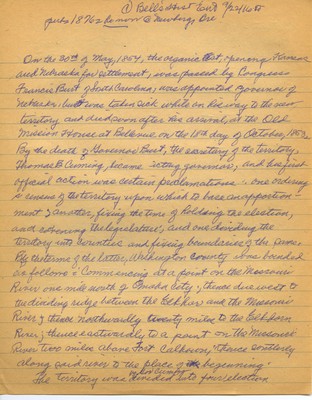 ① Bell's Hist
pub 1876 & he now @ Newberg, Ore!
On the 30th of May, 1854, the organic act, opening Kansas
and Nebraska for settlement, was passed by Congress
Francis Burt of South Carolina, was appointed governor of
Nebraska but was taken sick while on his way to the new
territory and died soon after his arrival, at the Old
Mission House at Bellevue on the 18th day of October, 1854.
By the death of Governor Burt, the secretary of the territory,
Thomas B Cuming, became acting governor, and his first
official action was certain proclamations: one ordering
a census of the territory upon which to base an apportion-
ment & another, fixing the time of holding the election,
and convening the legislature, and one dividing the
territory into counties and fixing boundaries of the same.
By the terms of the latter, Washington County was bounded
as follows: Commencing at a point on the Missouri
River one mile north of Omaha City; thence due west to
the dividing ridge between the Elkhorn and the Missouri
River; thence northwesterly twenty miles to the Elkhorn
River; thence eastwardly to a point on the Missouri
River two miles above Fort Calhoun; thence southerly
along said river to the place of the beginning.
The territory was divided into four election